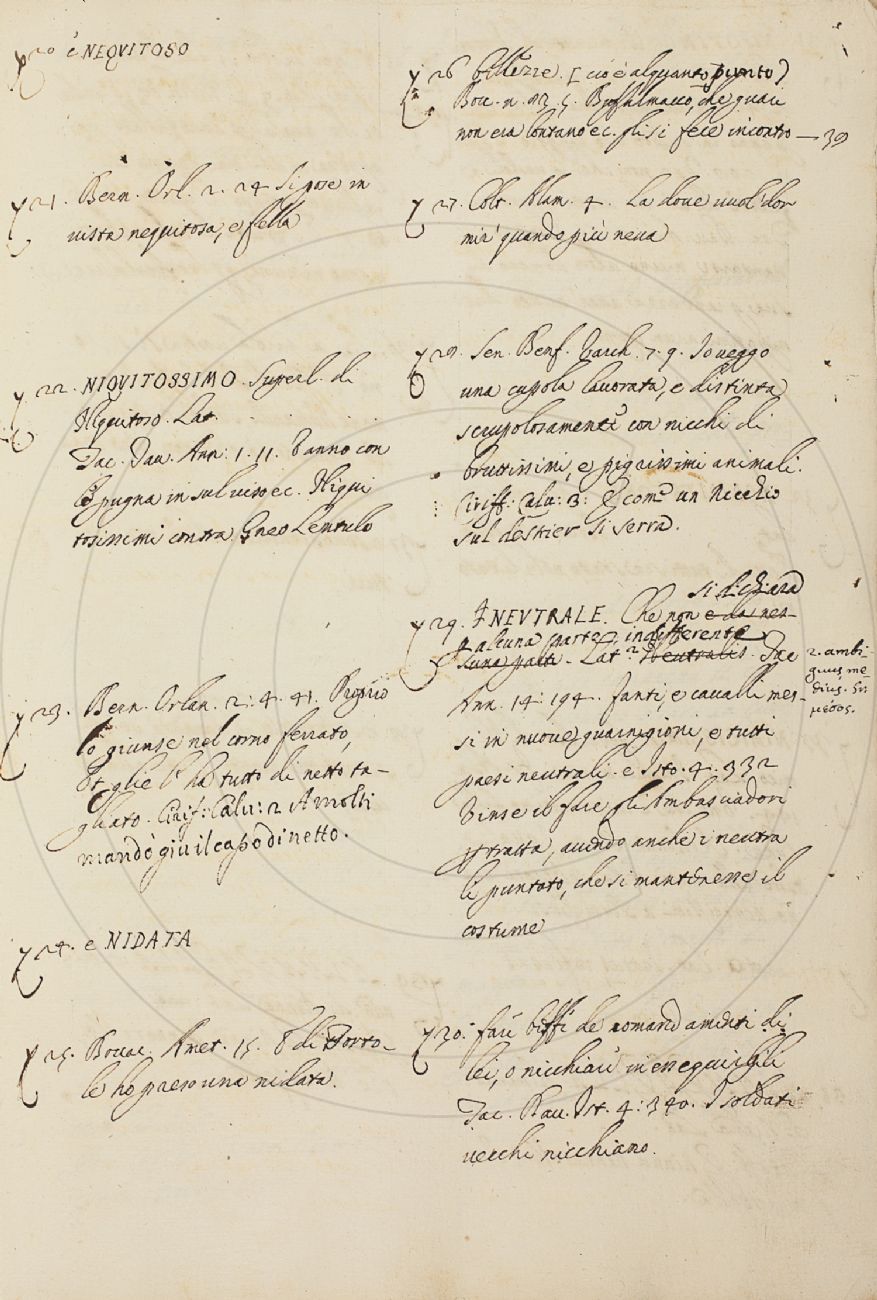 20 è NEQVITOSO
21. Bern. Orl. 2. 24 Si pose in
vista nequitosa, e fella
22. NIQVITOSSIMO. Superl. di
Niquitoso. Lat.
Tac. Dav. Ann: 1. 11. Danno con
le pugna in sul viso ec. Niqui
tosissimi contra Gneo Lentulo
23. Bern. Orlan. 2: 4. 41.
lo giunse nel corno ferrato,
Et glie l'ha tutto di netto ta-
gliato. Ciriff: Calv: 2 A molti
mandò giù il capo di netto.
24. e NIDATA
25. Bocac. Amet. 15. E di Torto-
le ho preso una nidata.
26 bellezze. [cio è alquanto, punto)
Boc. n. 73. 5. Buffalmacco, che guari
non era lontano ec. gli si fece incontro — 30
27. Colt. Alam. 4. La dove vuol dor
mir quando più neva
28. Sen. Benf. Varch. 7. 9. Io veggo
una cupola lavorata, e distinta
scrupolosamente con nicchi di
bruttissimi, e pigrissimi animali.
Ciriff: Calv: 3: E come un Nicchio
sul destrier si serra.
si dichiara
29. NEVTRALE. Che non è da nes-
alcuna parte, indifferente
suna parte. Lat. Neutralis. Tac
2. ambi-
guus me-
dius.
μέσος.
Ann. 14: 194. fanti, e cavalli mes-
si in nuove guarnigioni, e tutti
paesi neutrali. e Isto. 4. 332
Vinse il fare gli Ambasciadori
p tratta, avendo anche i neutra
li puntato, che si mantenesse il
costume
30. far beffe de comandamenti di
lei, o nicchiar in esseguirgli
Tac. Dav. Ist. 4: 340. I soldati
vecchi nicchiano.